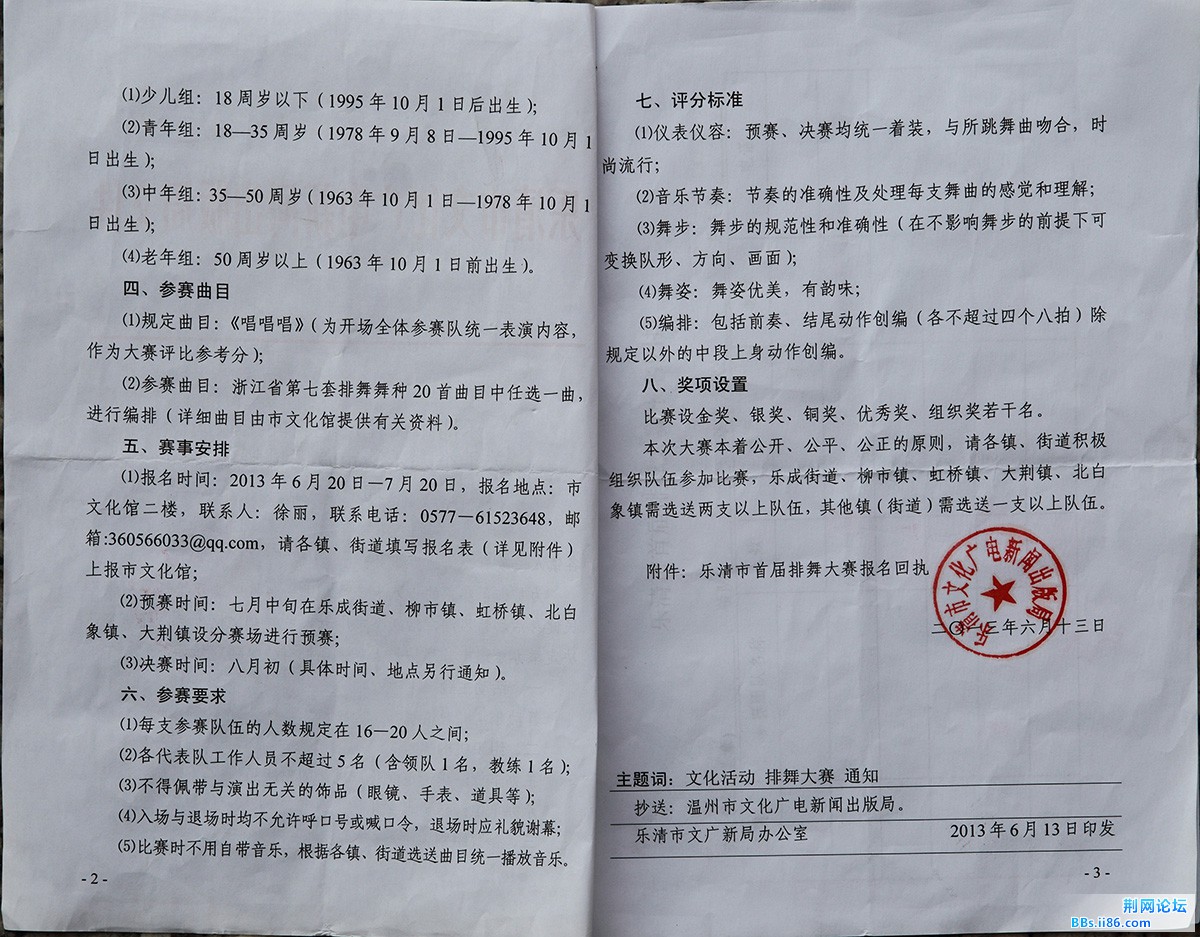 ⑴少儿组：18 周岁以下（1995 年 10 月 1 日后出生）；
⑵青年组：18—35 周岁（1978 年 9 月 8 日—1995 年 10 月 1
日出生）；
⑶中年组：35—50 周岁（1963 年 10 月 1 日—1978 年 10 月 1
日出生）；
⑷老年组：50 周岁以上（1963 年 10 月 1 日前出生）。
四、参赛曲目
⑴规定曲目：《唱唱唱》（为开场全体参赛队统一表演内容，
作为大赛评比参考分）；
⑵参赛曲目：浙江省第七套排舞舞种 20 首曲目中任选一曲，
进行编排（详细曲目由市文化馆提供有关资料）。
五、赛事安排
⑴报名时间：2013 年 6 月 20 日—7 月 20 日，报名地点：市
文化馆二楼，联系人：徐丽，联系电话：0577—61523648，邮
箱:360566033@qq.com，请各镇、街道填写报名表（详见附件）
上报市文化馆；
⑵预赛时间：七月中旬在乐成街道、柳市镇、虹桥镇、北白
象镇、大荆镇设分赛场进行预赛；
⑶决赛时间：八月初（具体时间、地点另行通知）。
六、参赛要求
⑴每支参赛队伍的人数规定在 16—20 人之间；
⑵各代表队工作人员不超过 5 名（含领队 1 名，教练 1 名）；
⑶不得佩带与演出无关的饰品（眼镜、手表、道具等）；
⑷入场与退场时均不允许呼口号或喊口令，退场时应礼貌谢幕；
⑸比赛时不用自带音乐，根据各镇、街道选送曲目统一播放音乐。
- 2 -
七、评分标准
⑴仪表仪容：预赛、决赛均统一着装，与所跳舞曲吻合，时
尚流行；
⑵音乐节奏：节奏的准确性及处理每支舞曲的感觉和理解；
⑶舞步：舞步的规范性和准确性（在不影响舞步的前提下可
变换队形、方向、画面）；
⑷舞姿：舞姿优美，有韵味；
⑸编排：包括前奏、结尾动作创编（各不超过四个八拍）除
规定以外的中段上身动作创编。
八、奖项设置
比赛设金奖、银奖、铜奖、优秀奖、组织奖若干名。
本次大赛本着公开、公平、公正的原则，请各镇、街道积极
组织队伍参加比赛，乐成街道、柳市镇、虹桥镇、大荆镇、北白
象镇需选送两支以上队伍，其他镇（街道）需选送一支以上队伍。
附件：乐清市首届排舞大赛报名回执
乐清市文化广电新闻出版局
二〇一三年六月十三日
主题词：文化活动 排舞大赛 通知
抄送：温州市文化广电新闻出版局。
乐清市文广新局办公室 2013 年 6 月 13 日印发
- 3 -
荆网论坛
BBs.ii86.com